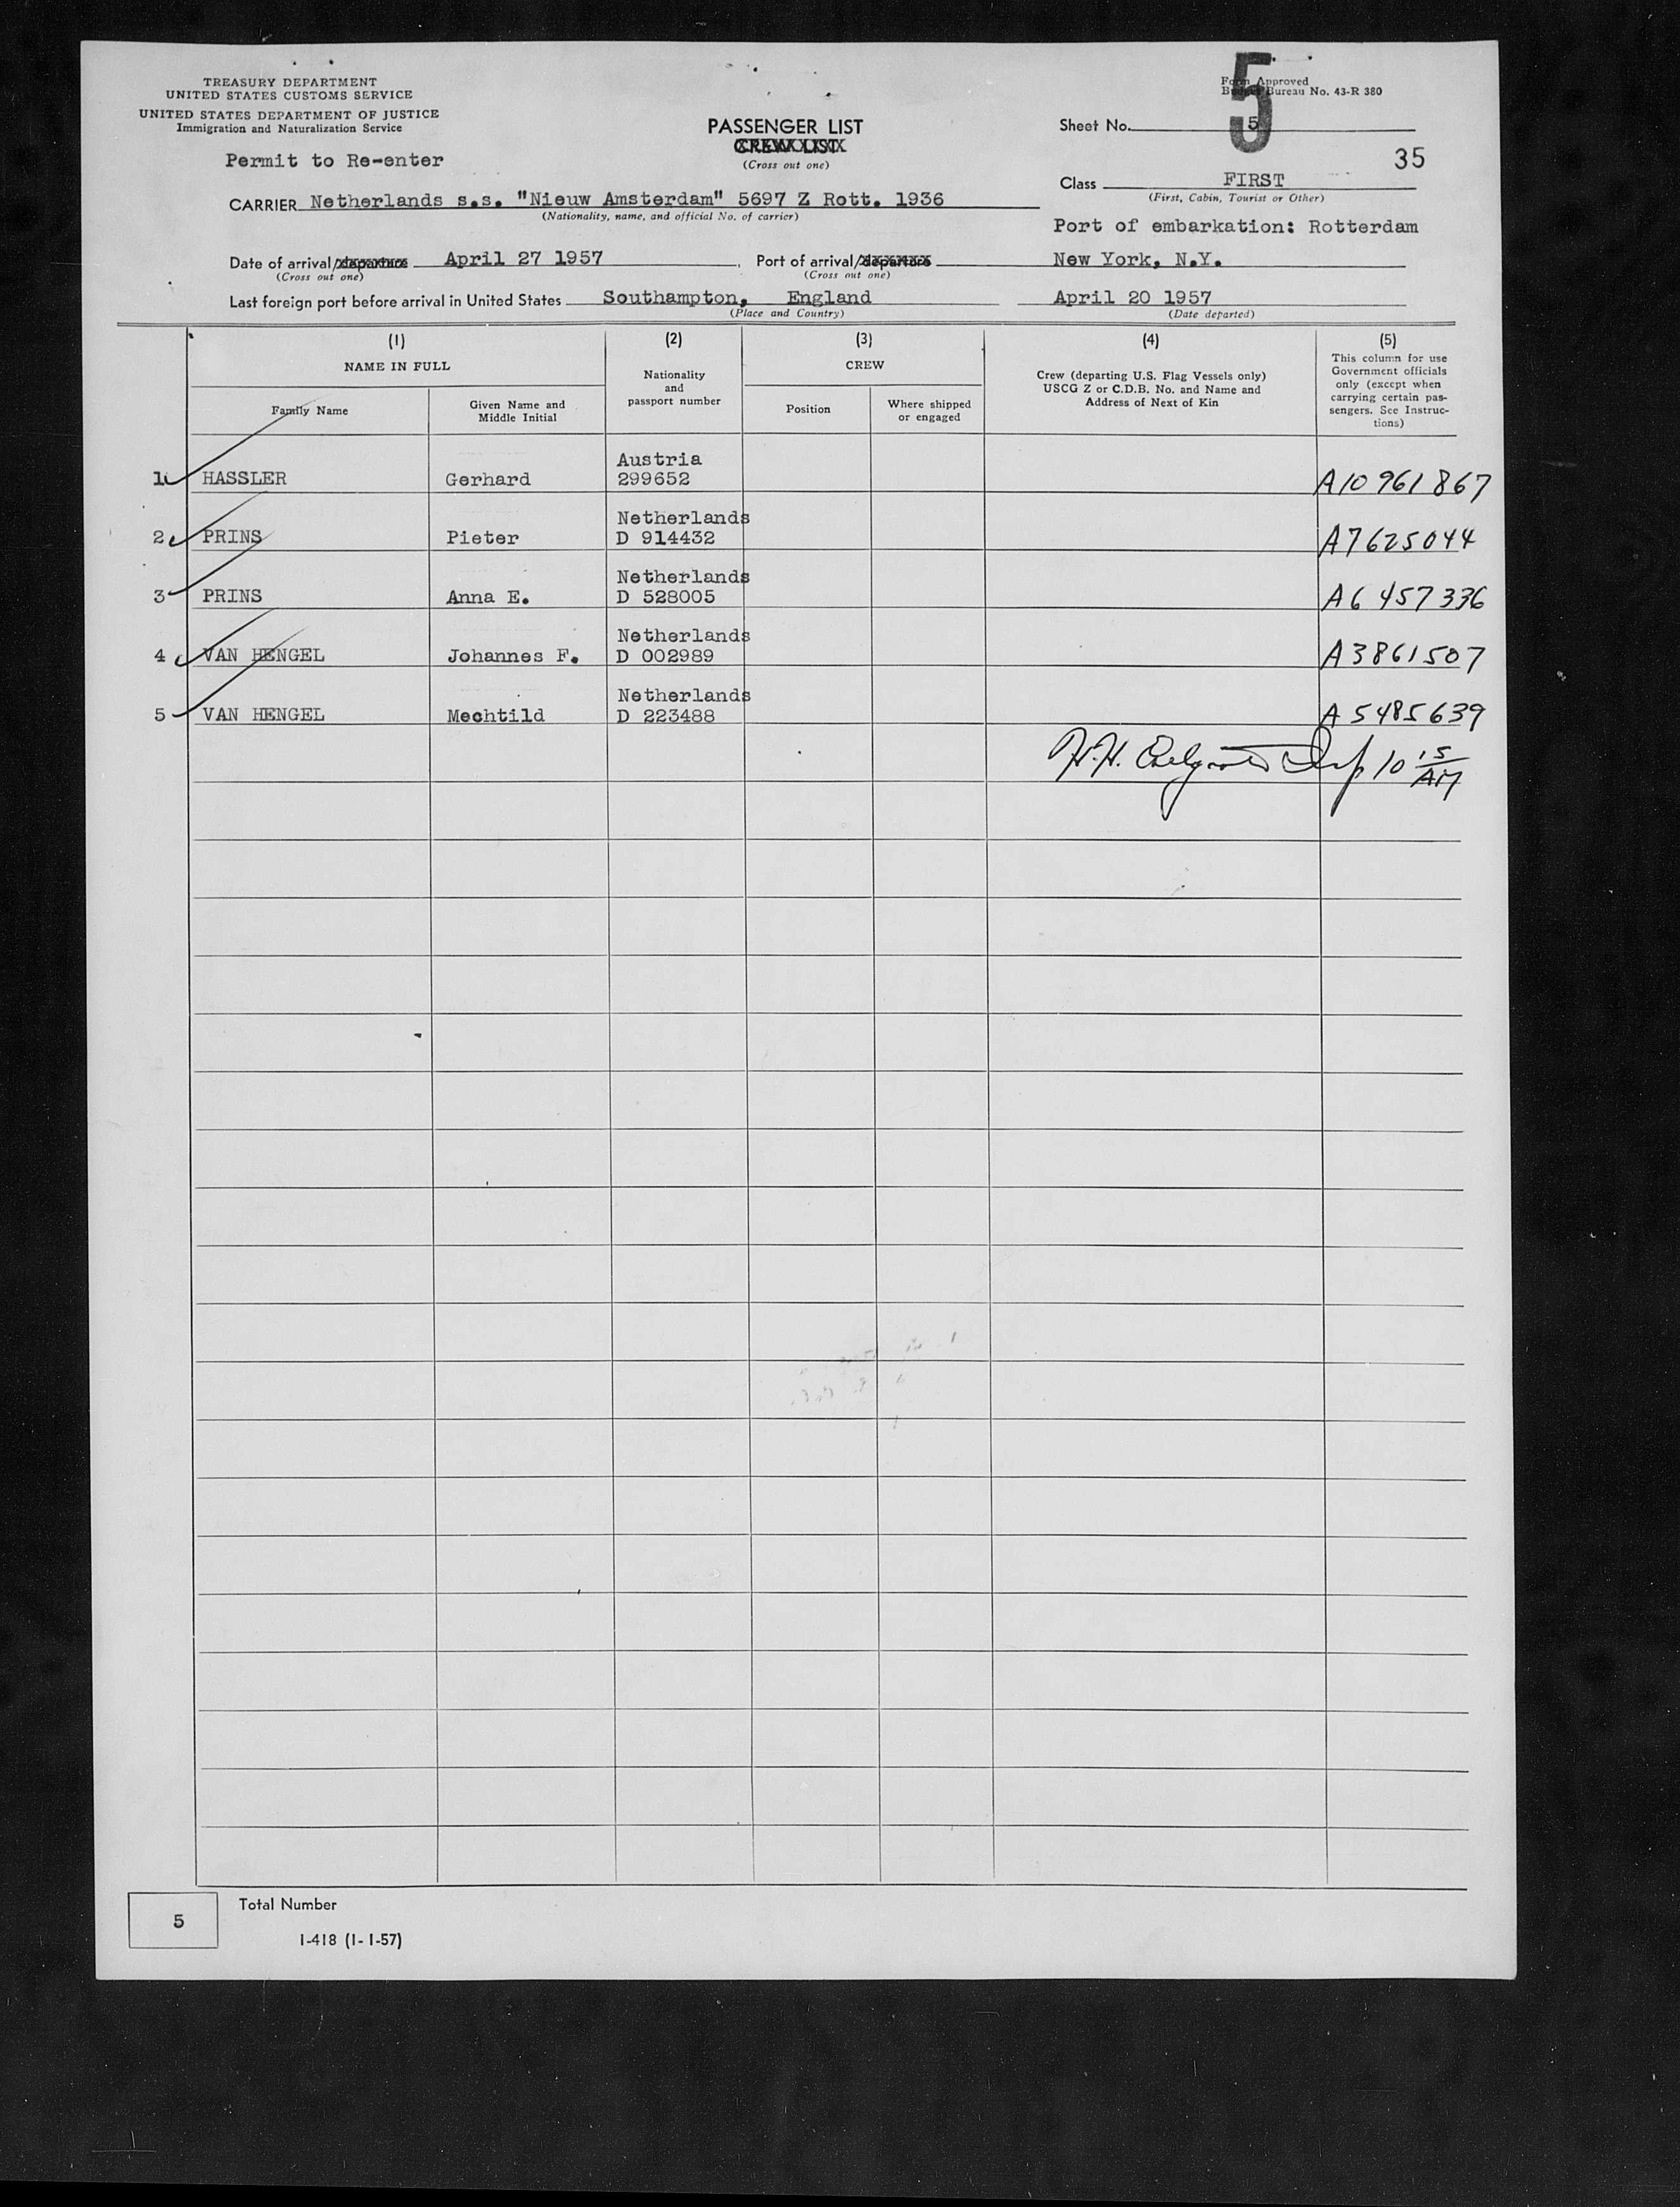 TREASURY DEPARTMENT
UNITED STATES CUSTOMS SERVICE
UNITED STATES DEPARTMENT OF JUSTICE
Immigration and Naturalization Service
Permit to Re-enter
PASSENGER LIST
CREW LIST
(Cross out one)
5
Form Approved
Budget Bureau No. 43-R 380
Sheet No. 5
35
Class FIRST
(First, Cabin, Tourist or Other)
CARRIER Netherlands s.s. "Nieuw Amsterdam" 5697 Z Rott. 1936
(Nationality, name, and official No. of carrier)
Port of embarkation: Rotterdam
Date of arrival/departure April 27 1957, Port of arrival/departure New York, N.Y.
(Cross out one) (Cross out one)
Last foreign port before arrival in United States Southampton, England April 20 1957
(Place and Country) (Date departed)
(1) (2) (3) (4) (5)
NAME IN FULL
Family Name
Given Name and
Middle Initial
Nationality
and
passport number
CREW
Position
Where shipped
or engaged
Crew (departing U.S. Flag Vessels only)
USCG Z or C.D.B. No. and Name and
Address of Next of Kin
This column for use
Government officials
only (except when
carrying certain pas-
sengers. See Instruc-
tions)
Austria
1 HASSLER Gerhard 299652 A10 961 867
Netherlands
2 PRINS Pieter D 914432 A7625044
Netherlands
3 PRINS Anna E. D 528005 A6 457 336
Netherlands
4 VAN HENGEL Johannes F. D 002989 A3861507
Netherlands
5 VAN HENGEL Mechtild D 223488 A5485639
H.H. Insp 10 15 AM
5 Total Number
I-418 (1-1-57)